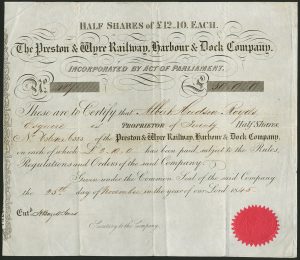 HALF SHARES of £12.10. EACH.
The Preston & Wyre Railway, Harbour & Dock Company.
INCORPORATED BY ACT OF PARLIAMENT.
No.
These are to Certify that Albert Hudson
Esquire is PROPRIETOR of Half Shares
of the Preston & Wyre Railway, Harbour & Dock Company,
on each of which £2.10.0 has been paid, subject to the Rules,
Regulations and Orders of the said Company.
Given under the Common Seal of the said Company
the 25th day of November in the year of our Lord 1845
Entd.
Secretary to the Company.